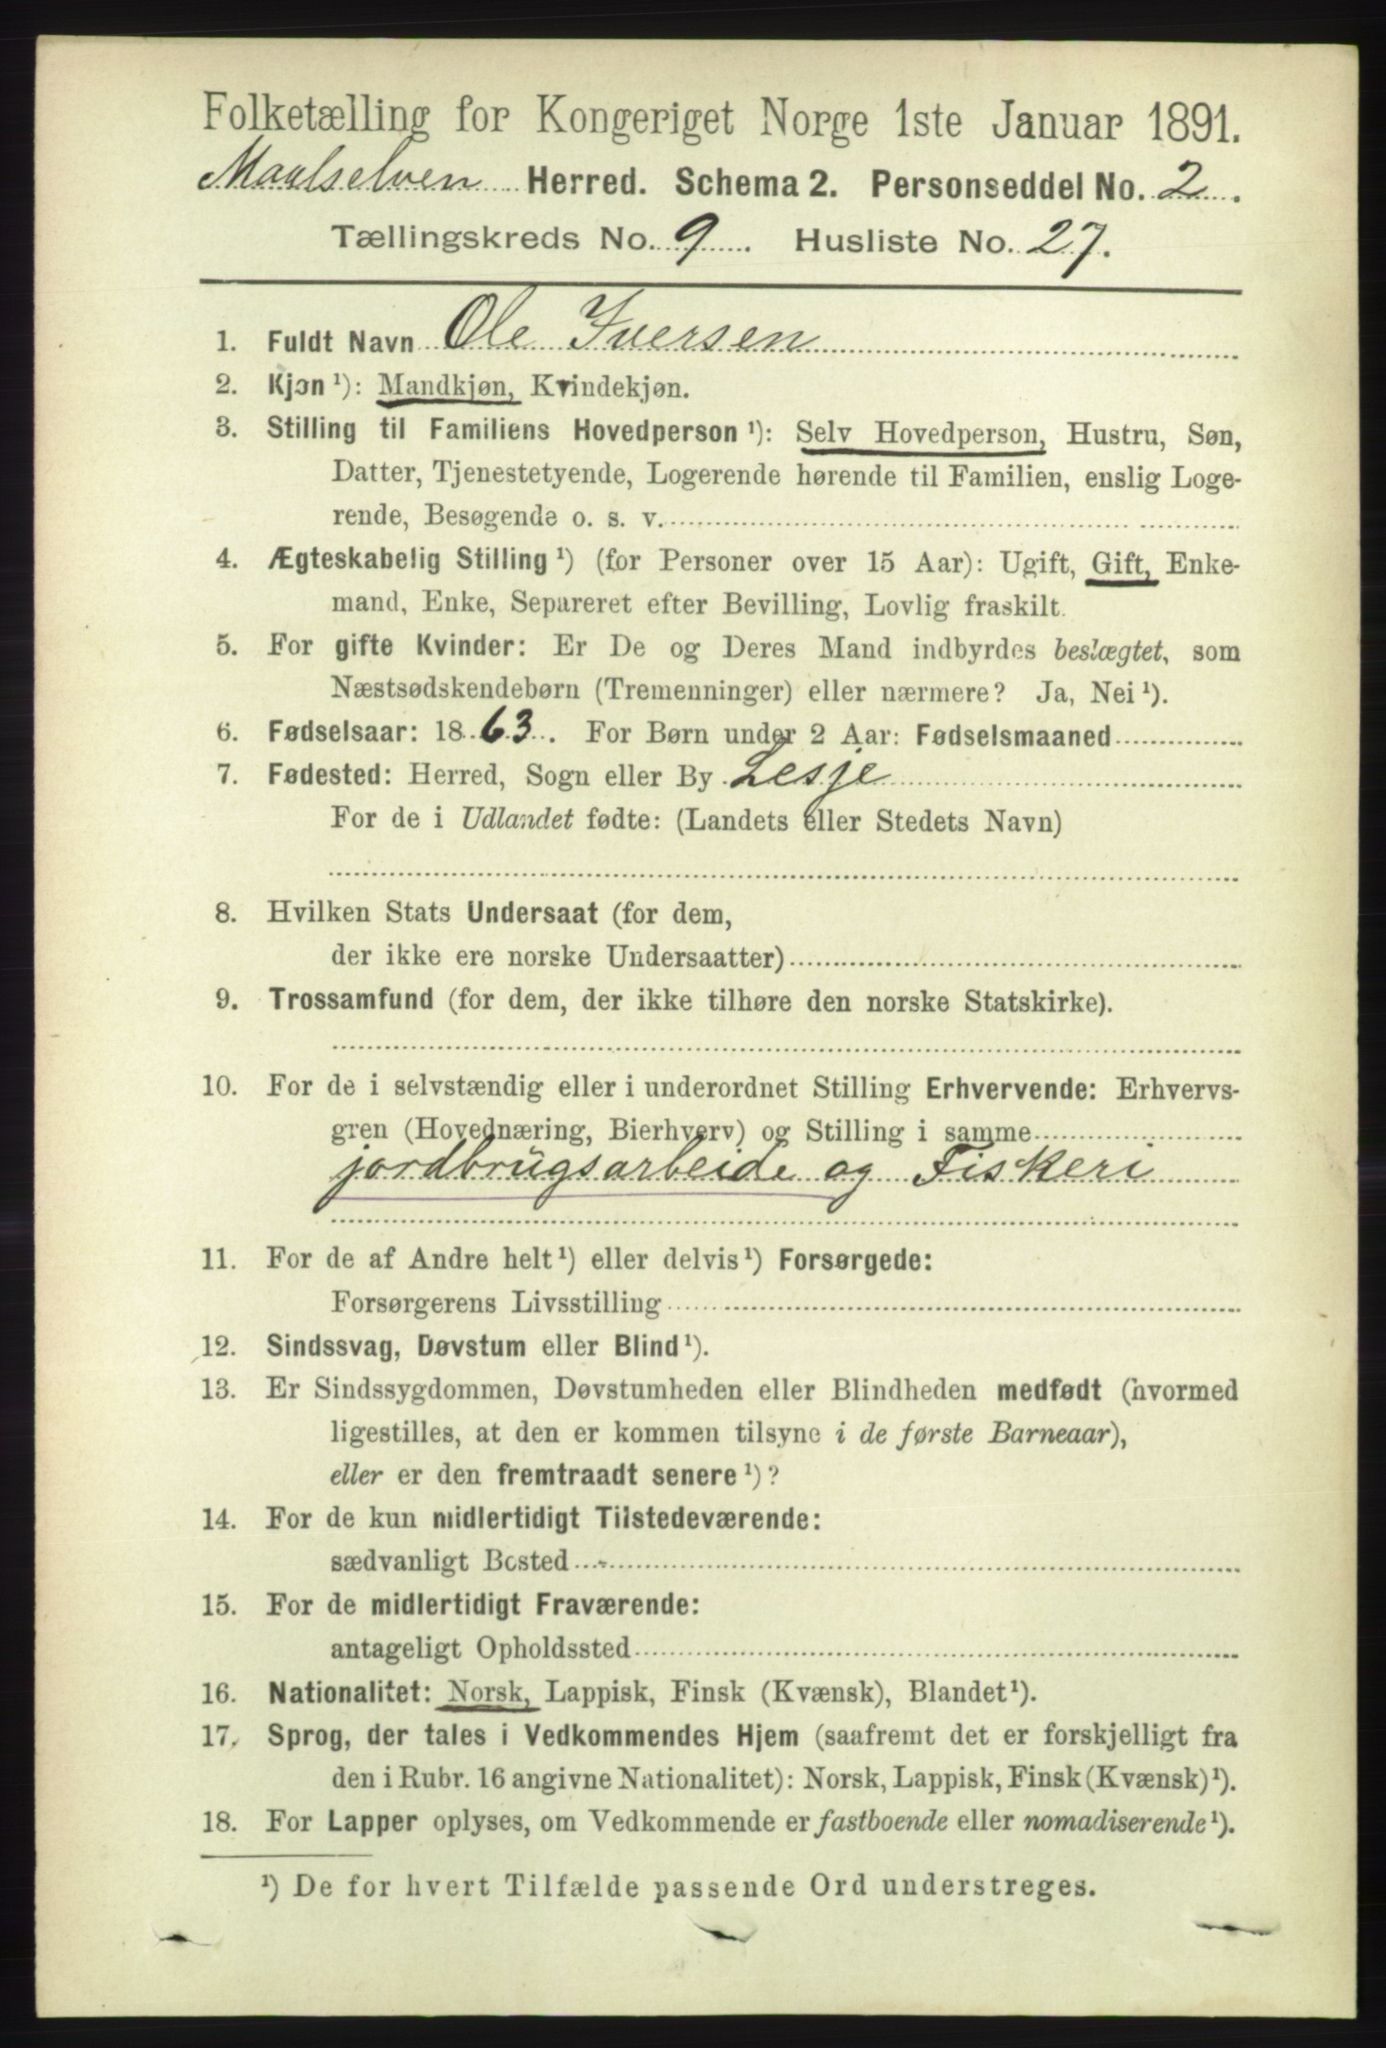 Folketælling for Kongeriget Norge 1ste Januar 1891.
Maalselven Herred. Schema 2. Personseddel No. 2.
Tællingskreds No. 9. Husliste No. 27.
1. Fuldt Navn Ole Iversen
2. Kjøn ¹): Mandkjøn, Kvindekjøn.
3. Stilling til Familiens Hovedperson ¹): Selv Hovedperson, Hustru, Søn,
Datter, Tjenestetyende, Logerende hørende til Familien, enslig Loge-
rende, Besøgende o. s. v.
4. Ægteskabelig Stilling ¹) (for Personer over 15 Aar): Ugift, Gift, Enke-
mand, Enke, Separeret efter Bevilling, Lovlig fraskilt.
5. For gifte Kvinder: Er De og Deres Mand indbyrdes beslægtet, som
Næstsødskendebørn (Tremenninger) eller nærmere? Ja, Nei ¹).
6. Fødselsaar: 1863. For Børn under 2 Aar: Fødselsmaaned
7. Fødested: Herred, Sogn eller By Lesje
For de i Udlandet fødte: (Landets eller Stedets Navn)
8. Hvilken Stats Undersaat (for dem,
der ikke ere norske Undersaatter)
9. Trossamfund (for dem, der ikke tilhøre den norske Statskirke).
10. For de i selvstændig eller i underordnet Stilling Erhvervende: Erhvervs-
gren (Hovednæring, Bierhverv) og Stilling i samme
jordbrugsarbeide og Fiskeri
11. For de af Andre helt ¹) eller delvis ¹) Forsørgede:
Forsørgerens Livsstilling
12. Sindssvag, Døvstum eller Blind ¹).
13. Er Sindssygdommen, Døvstumheden eller Blindheden medfødt (hvormed
ligestilles, at den er kommen tilsyne i de første Barneaar),
eller er den fremtraadt senere ¹)?
14. For de kun midlertidigt Tilstedeværende:
sædvanligt Bosted
15. For de midlertidigt Fraværende:
antageligt Opholdssted
16. Nationalitet: Norsk, Lappisk, Finsk (Kvænsk), Blandet ¹).
17. Sprog, der tales i Vedkommendes Hjem (saafremt det er forskjelligt fra
den i Rubr. 16 angivne Nationalitet): Norsk, Lappisk, Finsk (Kvænsk) ¹).
18. For Lapper oplyses, om Vedkommende er fastboende eller nomadiserende ¹).
¹) De for hvert Tilfælde passende Ord understreges.